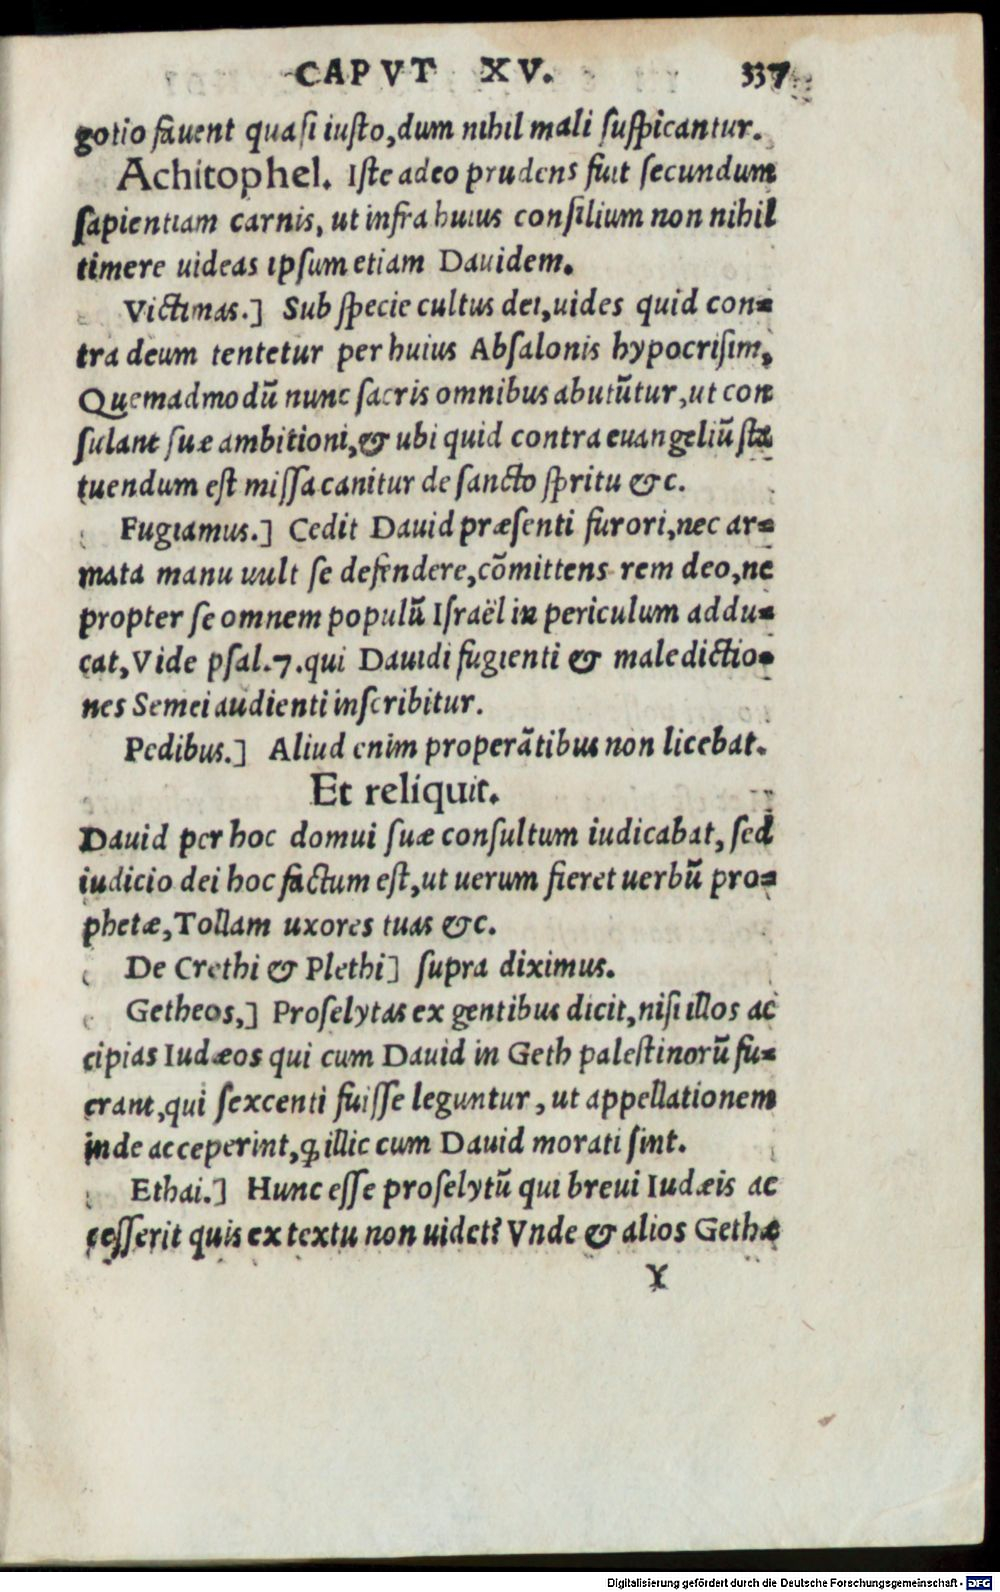 CAPVT XV. 337
gotio fauent quasi iusto, dum nihil mali suspicantur.
Achitophel. Iste adeo prudens fuit secundum
sapientiam carnis, ut infra huius consilium non nihil
timere uideas ipsum etiam Dauidem.
Victimas.] Sub specie cultus dei, uides quid con=
tra deum tentetur per huius Absalonis hypocrisim,
Quemadmodū nunc sacris omnibus abutūtur, ut con
sulant suæ ambitioni, & ubi quid contra euangeliū sta
tuendum est missa canitur de sancto spritu &c.
Fugiamus.] Cedit Dauid præsenti furori, nec ar=
mata manu uult se defendere, cōmittens rem deo, ne
propter se omnem populū Israël in periculum addu=
cat, Vide psal.7. qui Dauidi fugienti & maledictio=
nes Semei audienti inscribitur.
Pedibus.] Aliud enim properātibus non licebat.
Et reliquit.
Dauid per hoc domui suæ consultum iudicabat, sed
iudicio dei hoc factum est, ut uerum fieret uerbū pro=
phetæ, Tollam uxores tuas &c.
De Crethi & Plethi] supra diximus.
Getheos,] Proselytas ex gentibus dicit, nisi illos ac
cipias Iudæos qui cum Dauid in Geth palestinorū fu=
erant, qui sexcenti fuisse leguntur, ut appellationem
inde acceperint, ꝙ illic cum Dauid morati sint.
Ethai.] Hunc esse proselytū qui breui Iudæis ac
cesserit quis ex textu non uidet? Vnde & alios Gethæ
Y
Digitalisierung gefördert durch die Deutsche Forschungsgemeinschaft - DFG